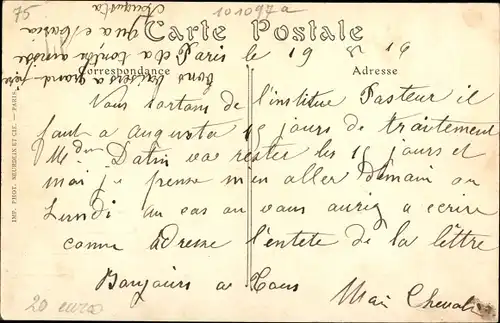 75
101097a
Augusta
Carte Postale
Correspondance
Adresse
Paris le 19 16
Bons Baisers a grand-père
Nous sortons de l'institue Pasteur il
faut a augusta 15 jours de traitement
Datin va rester les 15 jours et
moi je pense m'en aller Demain ou
Lundi au cas ou vous auriez a ecrire
comme adresse l'entete de la lettre
Bonjours a tous
20 euro
IMP. PHOT. NEURDEIN ET CIE. — PARIS